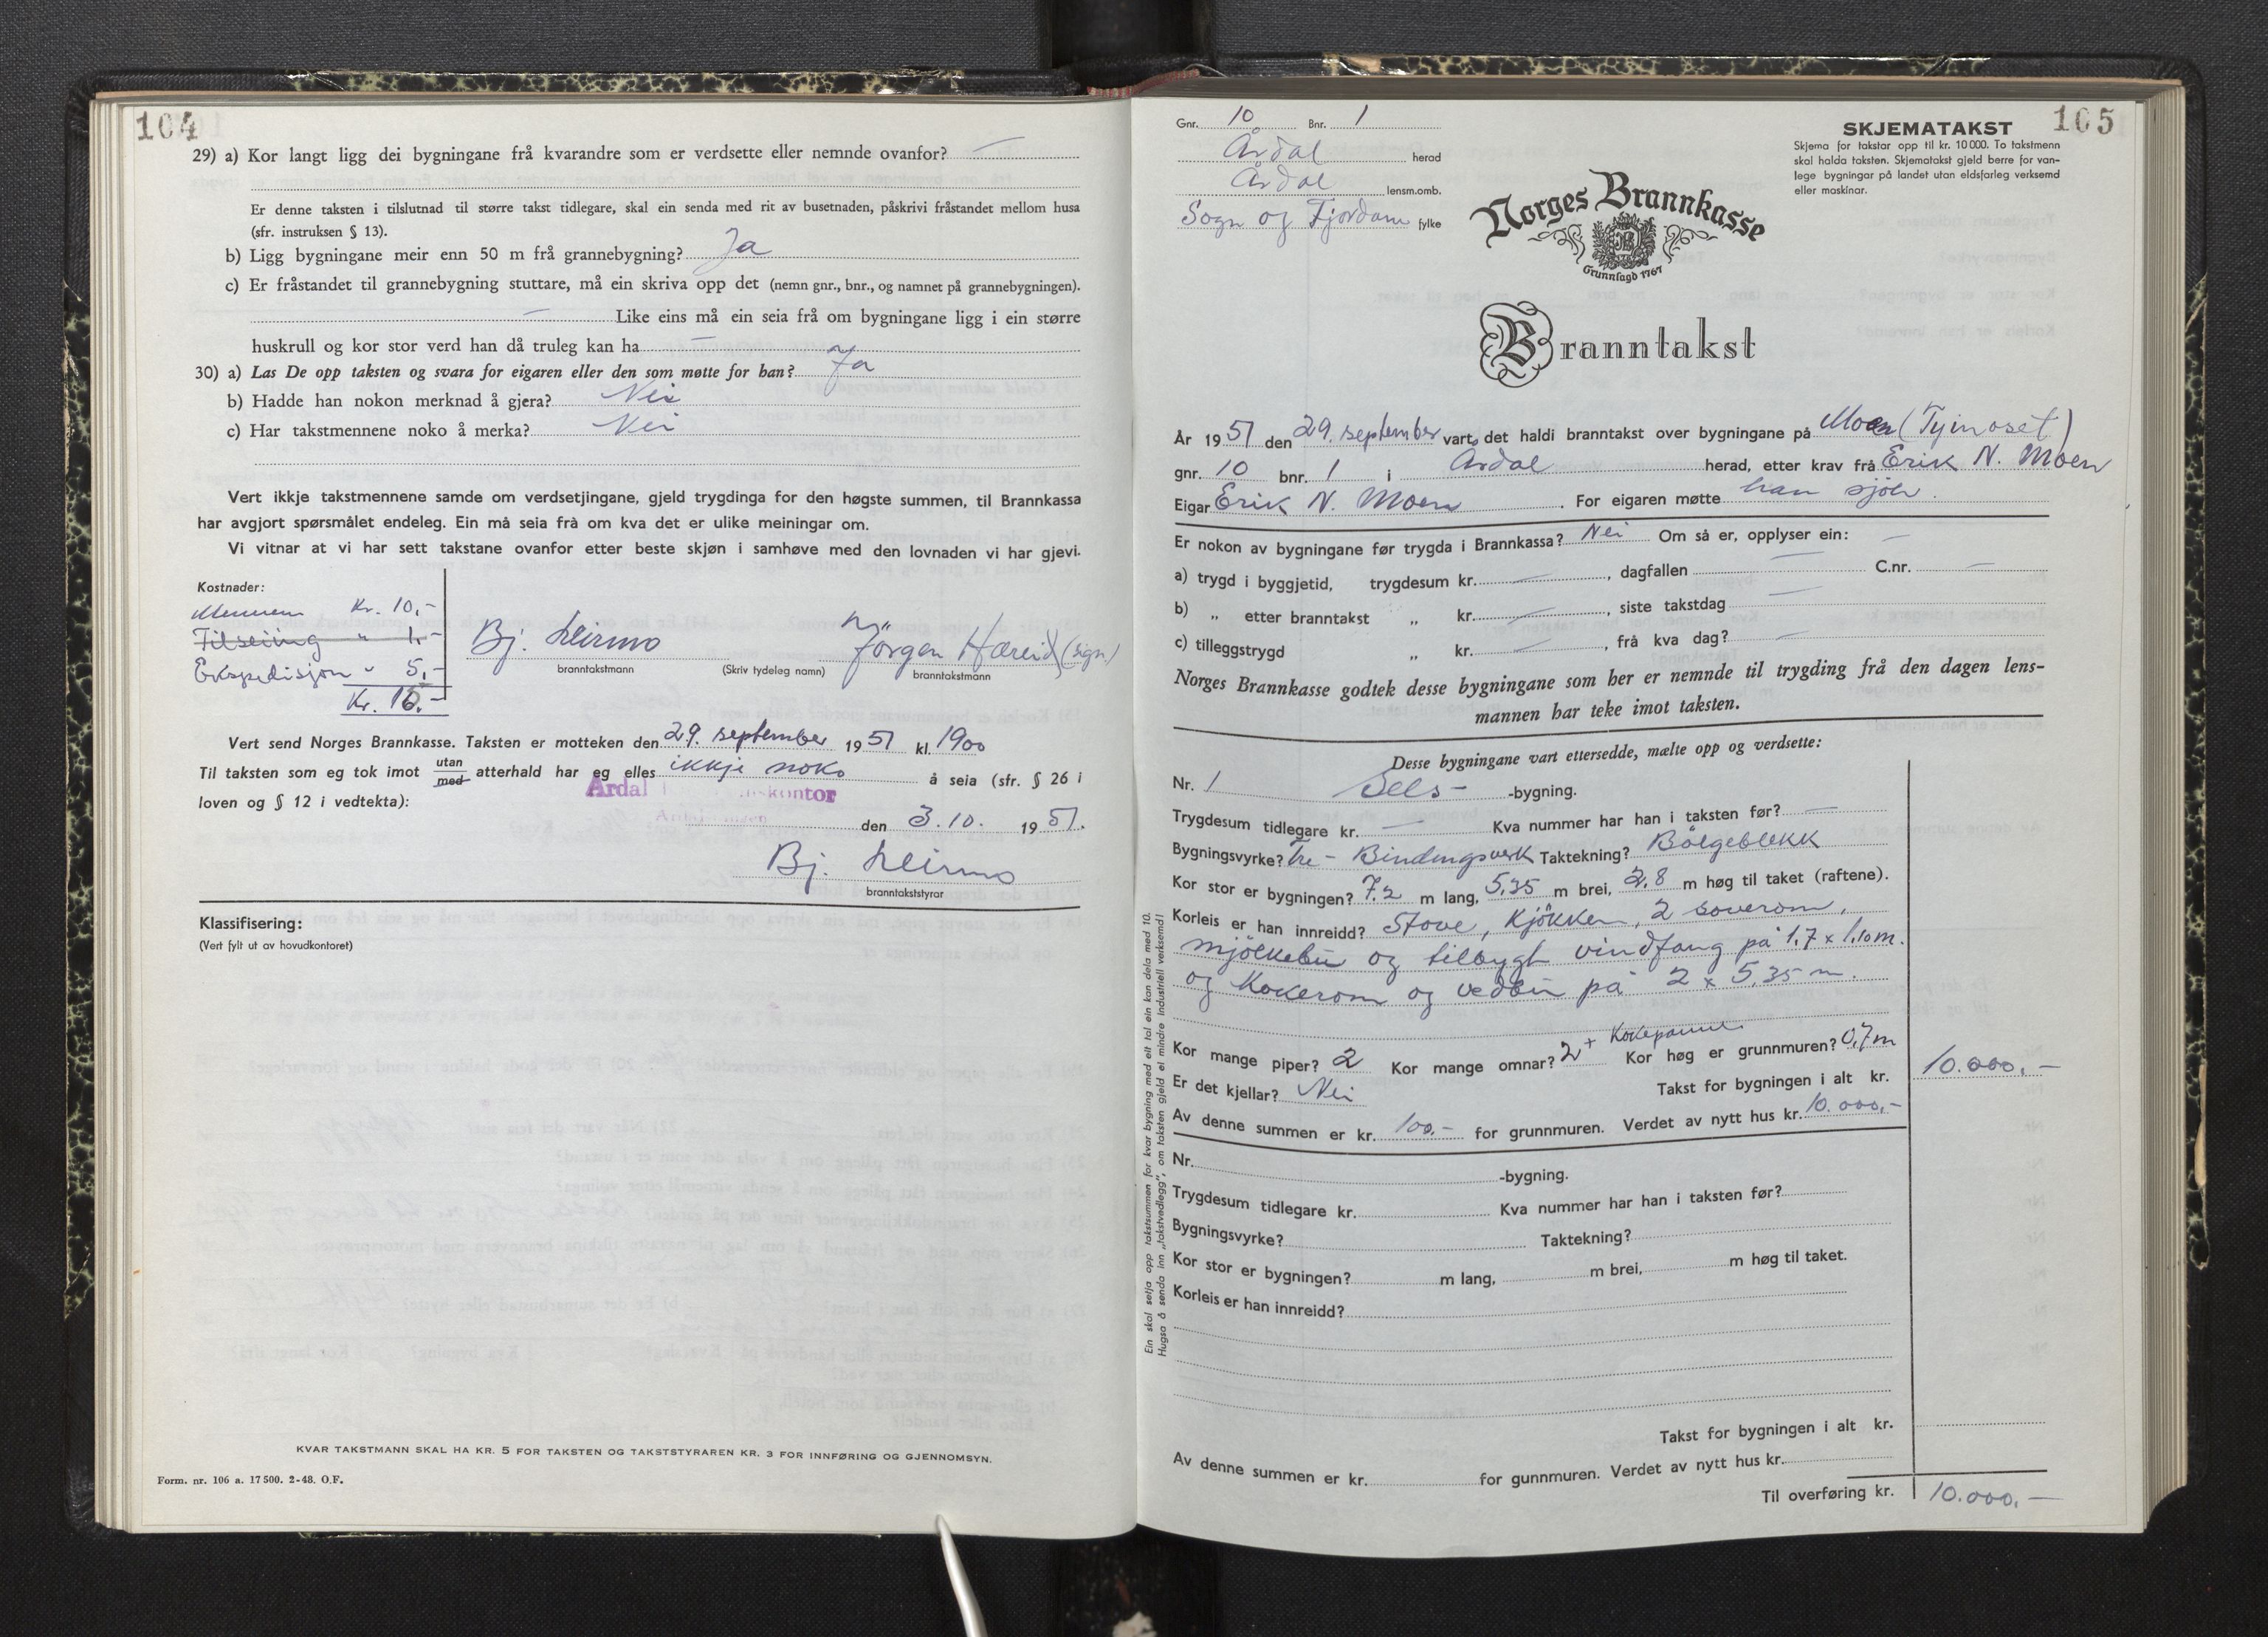 104
29) a) Kor langt ligg dei bygningane frå kvarandre som er verdsette eller nemnde ovanfor? —
Er denne taksten i tilslutnad til større takst tidlegare, skal ein senda med rit av busetnaden, påskrivi fråstandet mellom husa
(sfr. instruksen § 13).
b) Ligg bygningane meir enn 50 m frå grannebygning? Ja
c) Er fråstandet til grannebygning stuttare, må ein skriva opp det (nemn gnr., bnr., og namnet på grannebygningen).
— Like eins må ein seia frå om bygningane ligg i ein større
huskrull og kor stor verd han då truleg kan ha —
30) a) Las De opp taksten og svara for eigaren eller den som møtte for han? Ja
b) Hadde han nokon merknad å gjera? Nei
c) Har takstmennene noko å merka? Nei
Vert ikkje takstmennene samde om verdsetjingane, gjeld trygdinga for den høgste summen, til Brannkassa
har avgjort spørsmålet endeleg. Ein må seia frà om kva det er ulike meiningar om.
Vi vitnar at vi har sett takstane ovanfor etter beste skjøn i samhøve med den lovnaden vi har gjevi.
Kostnader:
Kr. 10,-
Tilseiing " 1,-
Ekspedisjon " 5,-
Kr. 15,-
Bj. Leirmo
Jörgen Hæreid (sign)
branntakstmann (Skriv tydeleg namn) branntakstmann
Vert send Norges Brannkasse. Taksten er motteken den 29. september 1951 kl. 1900
Til taksten som eg tok imot utan med atterhald har eg elles ikkje noko å seia (sfr. § 26 i
loven og § 12 i vedtekta):
Årdal kontor
den 3.10. 1951.
Bj. Leirmo
branntakststyrar
Klassifisering:
(Vert fylt ut av hovudkontoret)
KVAR TAKSTMANN SKAL HA KR. 5 FOR TAKSTEN OG TAKSTSTYRAREN KR. 3 FOR INNFØRING OG GJENNOMSYN.
Form. nr. 106 a. 17500. 2-48. O.F.
105
Gnr. 10 Bnr. 1
Årdal herad
Årdal lensm.omb.
Sogn og Fjordane fylke
SKJEMATAKST
Skjema for takstar opp til kr. 10 000. To takstmenn
skal halda taksten. Skjematakst gjeld berre for van-
lege bygningar på landet utan eldsfarleg verksemd
eller maskinar.
Norges Brannkasse
B
Grunnlagd 1767
Branntakst
År 1951 den 29. september vart det haldi branntakst over bygningane på Moen (Tyinoset)
gnr. 10 bnr. 1 i Årdal herad, etter krav frå Erik N. Moen
Eigar Erik N. Moen. For eigaren møtte han sjölv.
Er nokon av bygningane før trygda i Brannkassa? Nei Om så er, opplyser ein: —
a) trygd i byggjetid, trygdesum kr. —, dagfallen — C.nr. —
b) „ etter branntakst „ kr. —, siste takstdag —
c) tilleggstrygd „ kr. —, frå kva dag? —
Norges Brannkasse godtek desse bygningane som her er nemnde til trygding frå den dagen lens-
mannen har teke imot taksten.
Desse bygningane vart ettersedde, mælte opp og verdsette:
Nr. 1 Sels- -bygning.
Trygdesum tidlegare kr. — Kva nummer har han i taksten før? —
Bygningsvyrke? Tre - Bindingsverk Taktekning? Bölgeblekk
Kor stor er bygningen? 7.2 m lang, 5,35 m brei, 2,8 m høg til taket (raftene).
Korleis er han innreidd? Stove, Kjökken, 2 soverom,
mjölkebu og tilbygt vindfang på 1,7 x 1,10 m.
og Kokerom og vedbu på 2 x 5,35 m.
Kor mange piper? 2 Kor mange omnar? 2 + Kokepanne Kor høg er grunnmuren? 0,7 m
Er det kjellar? Nei Takst for bygningen i alt kr. 10.000,—
Av denne summen er kr. 100,- for grunnmuren. Verdet av nytt hus kr. 10.000,-
Nr. -bygning.
Trygdesum tidlegare kr. Kva nummer har han i taksten før?
Bygningsvyrke? Taktekning?
Kor stor er bygningen? m lang, m brei, m høg til taket.
Korleis er han innreidd?
Takst for bygningen i alt kr.
Av denne summen er kr. for gunnmuren. Verdet av nytt hus kr.
Til overføring kr. 10.000,—
Ein skal setja opp takstsummen for kvar bygning med eit tal ein kan dela med 10.
Hugsa å senda inn „takstvedlegg", om taksten gjeld ei mindre industriell verksemd!